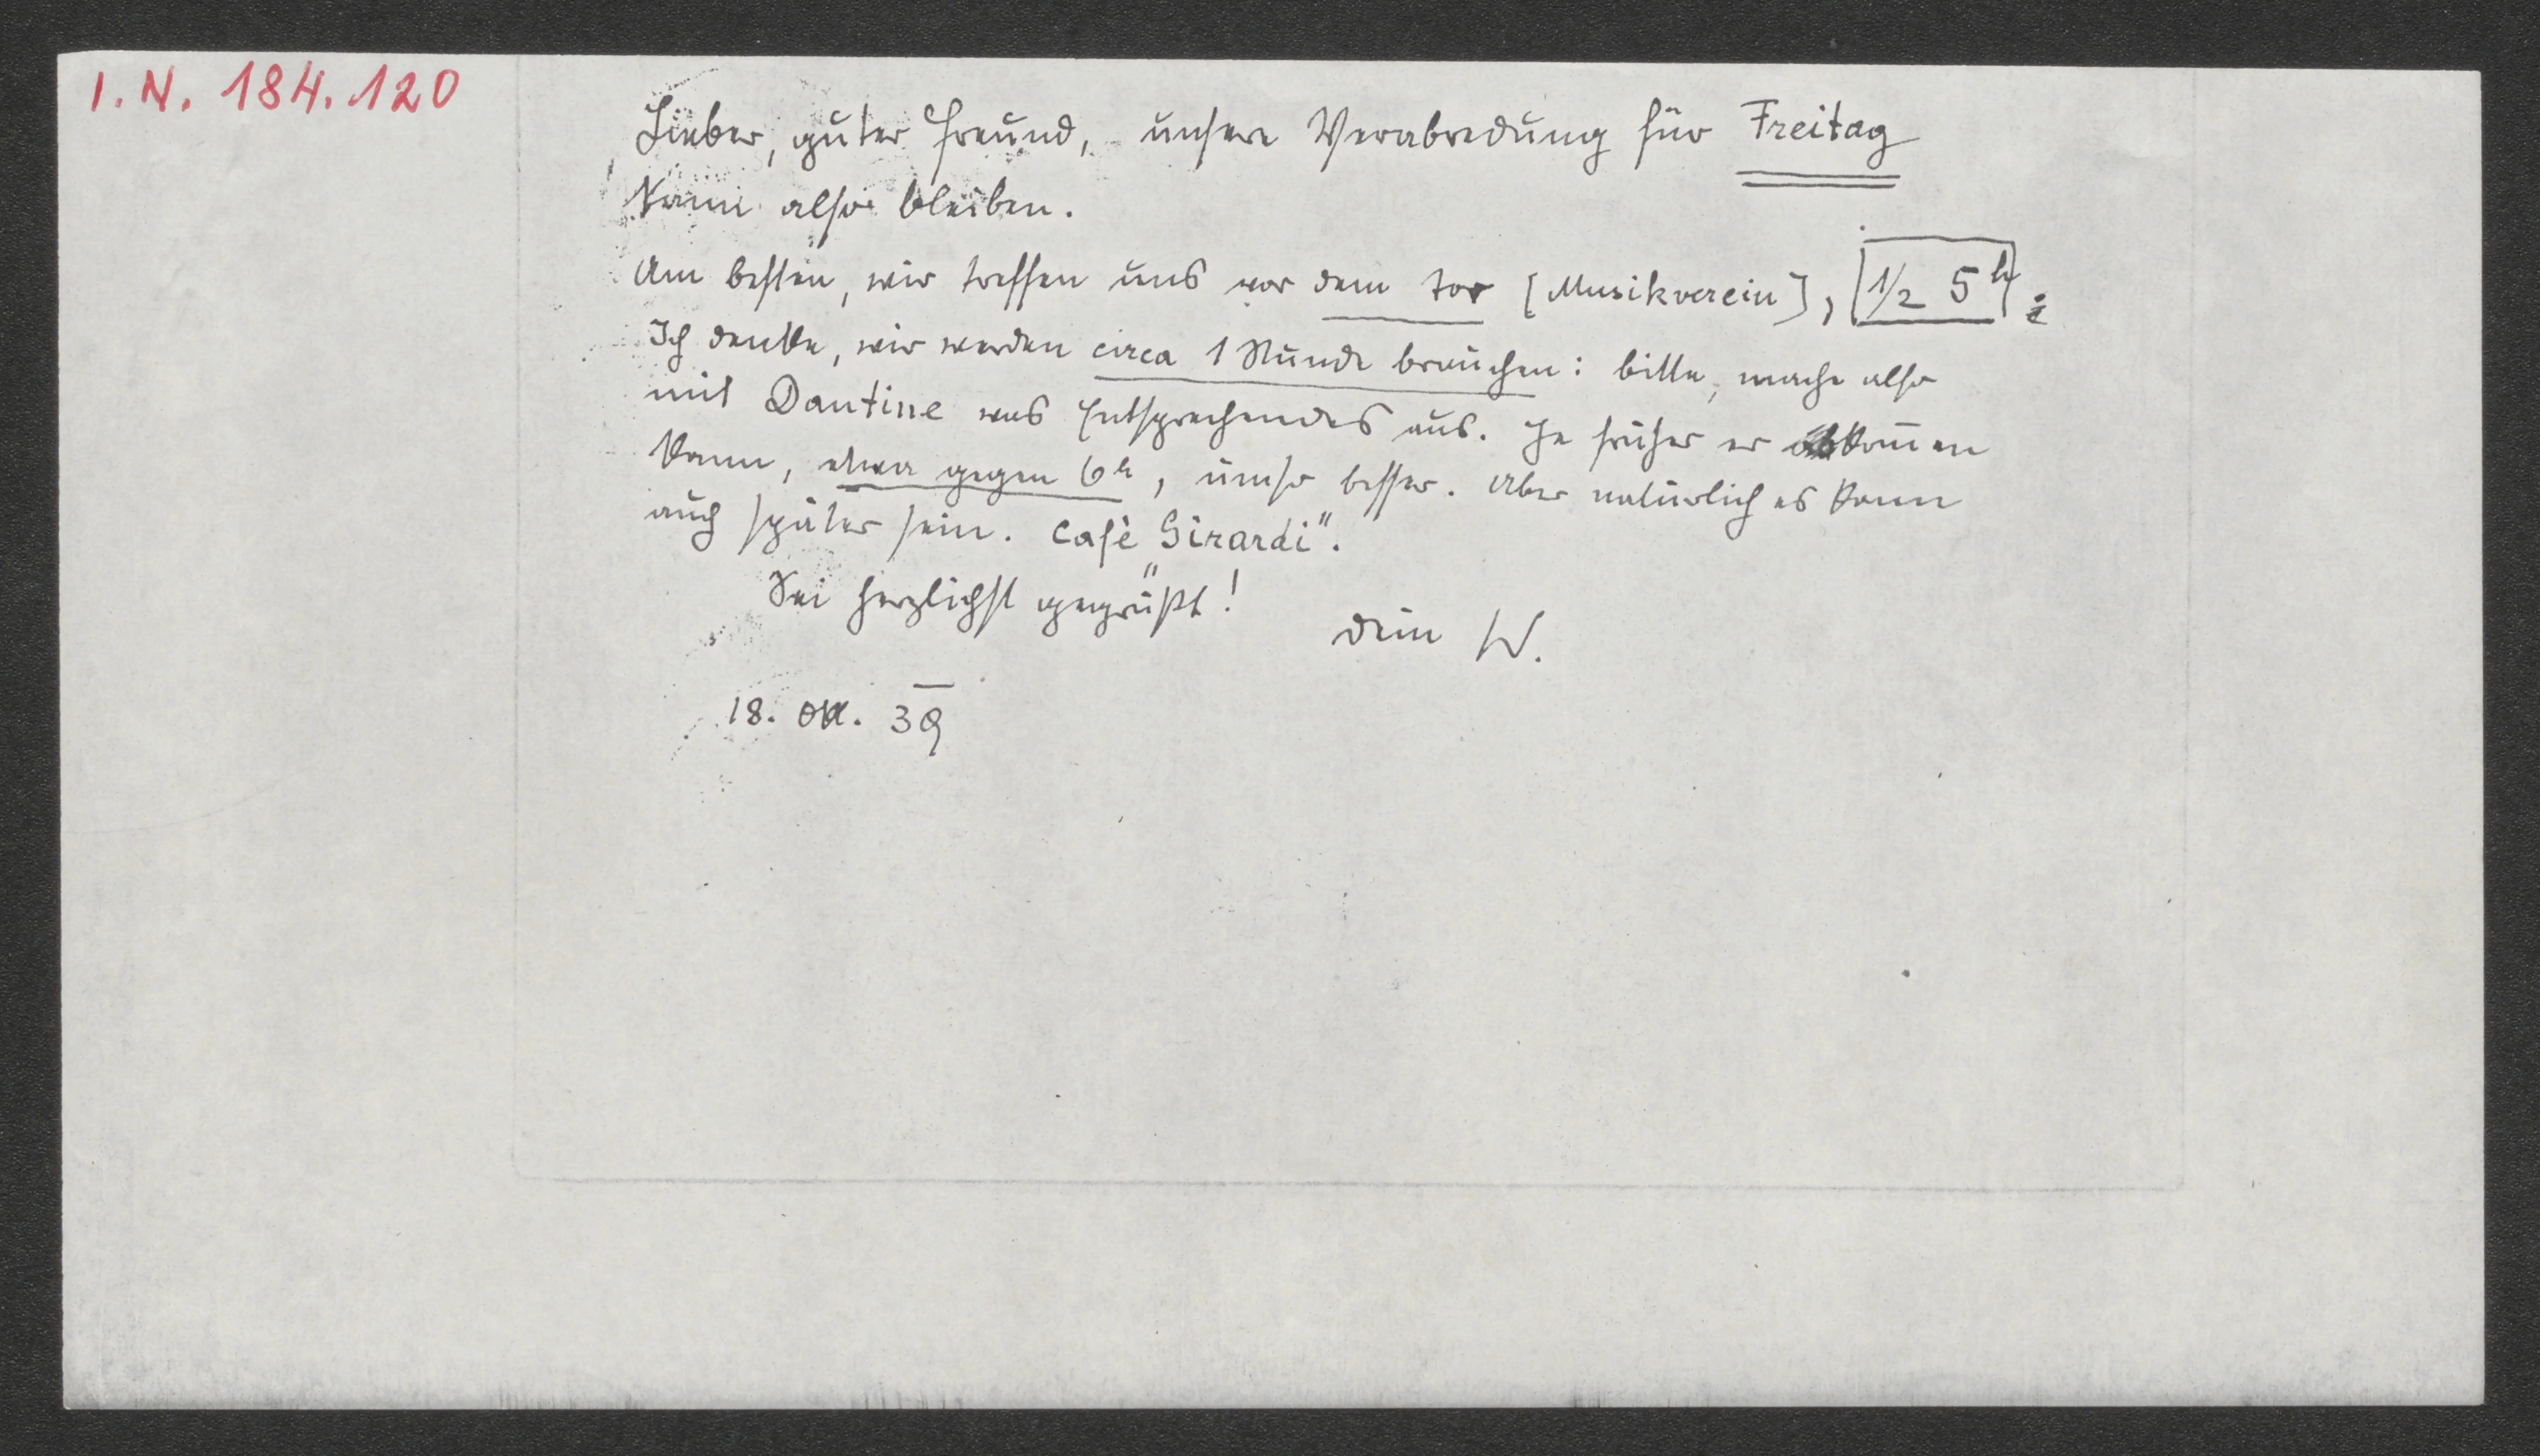 I. N. 184.120
Lieber, guter Freund, unsere Verabredung für Freitag
kann also bleiben.
Am besten, wir treffen uns vor dem Tor [Musikverein], 1/2 5h:
Ich denke, wir werden circa 1 Stunde brauchen: bitte, mache also
mit Dantine was Entsprechendes aus. Je früher er kom̄en
kann, etwa gegen 6h, umso besser. Aber natürlich es kann
auch später sein. Cafè Girardi".
Sei herzlichst gegrüßt!
Dein W.
18. Okt. 39